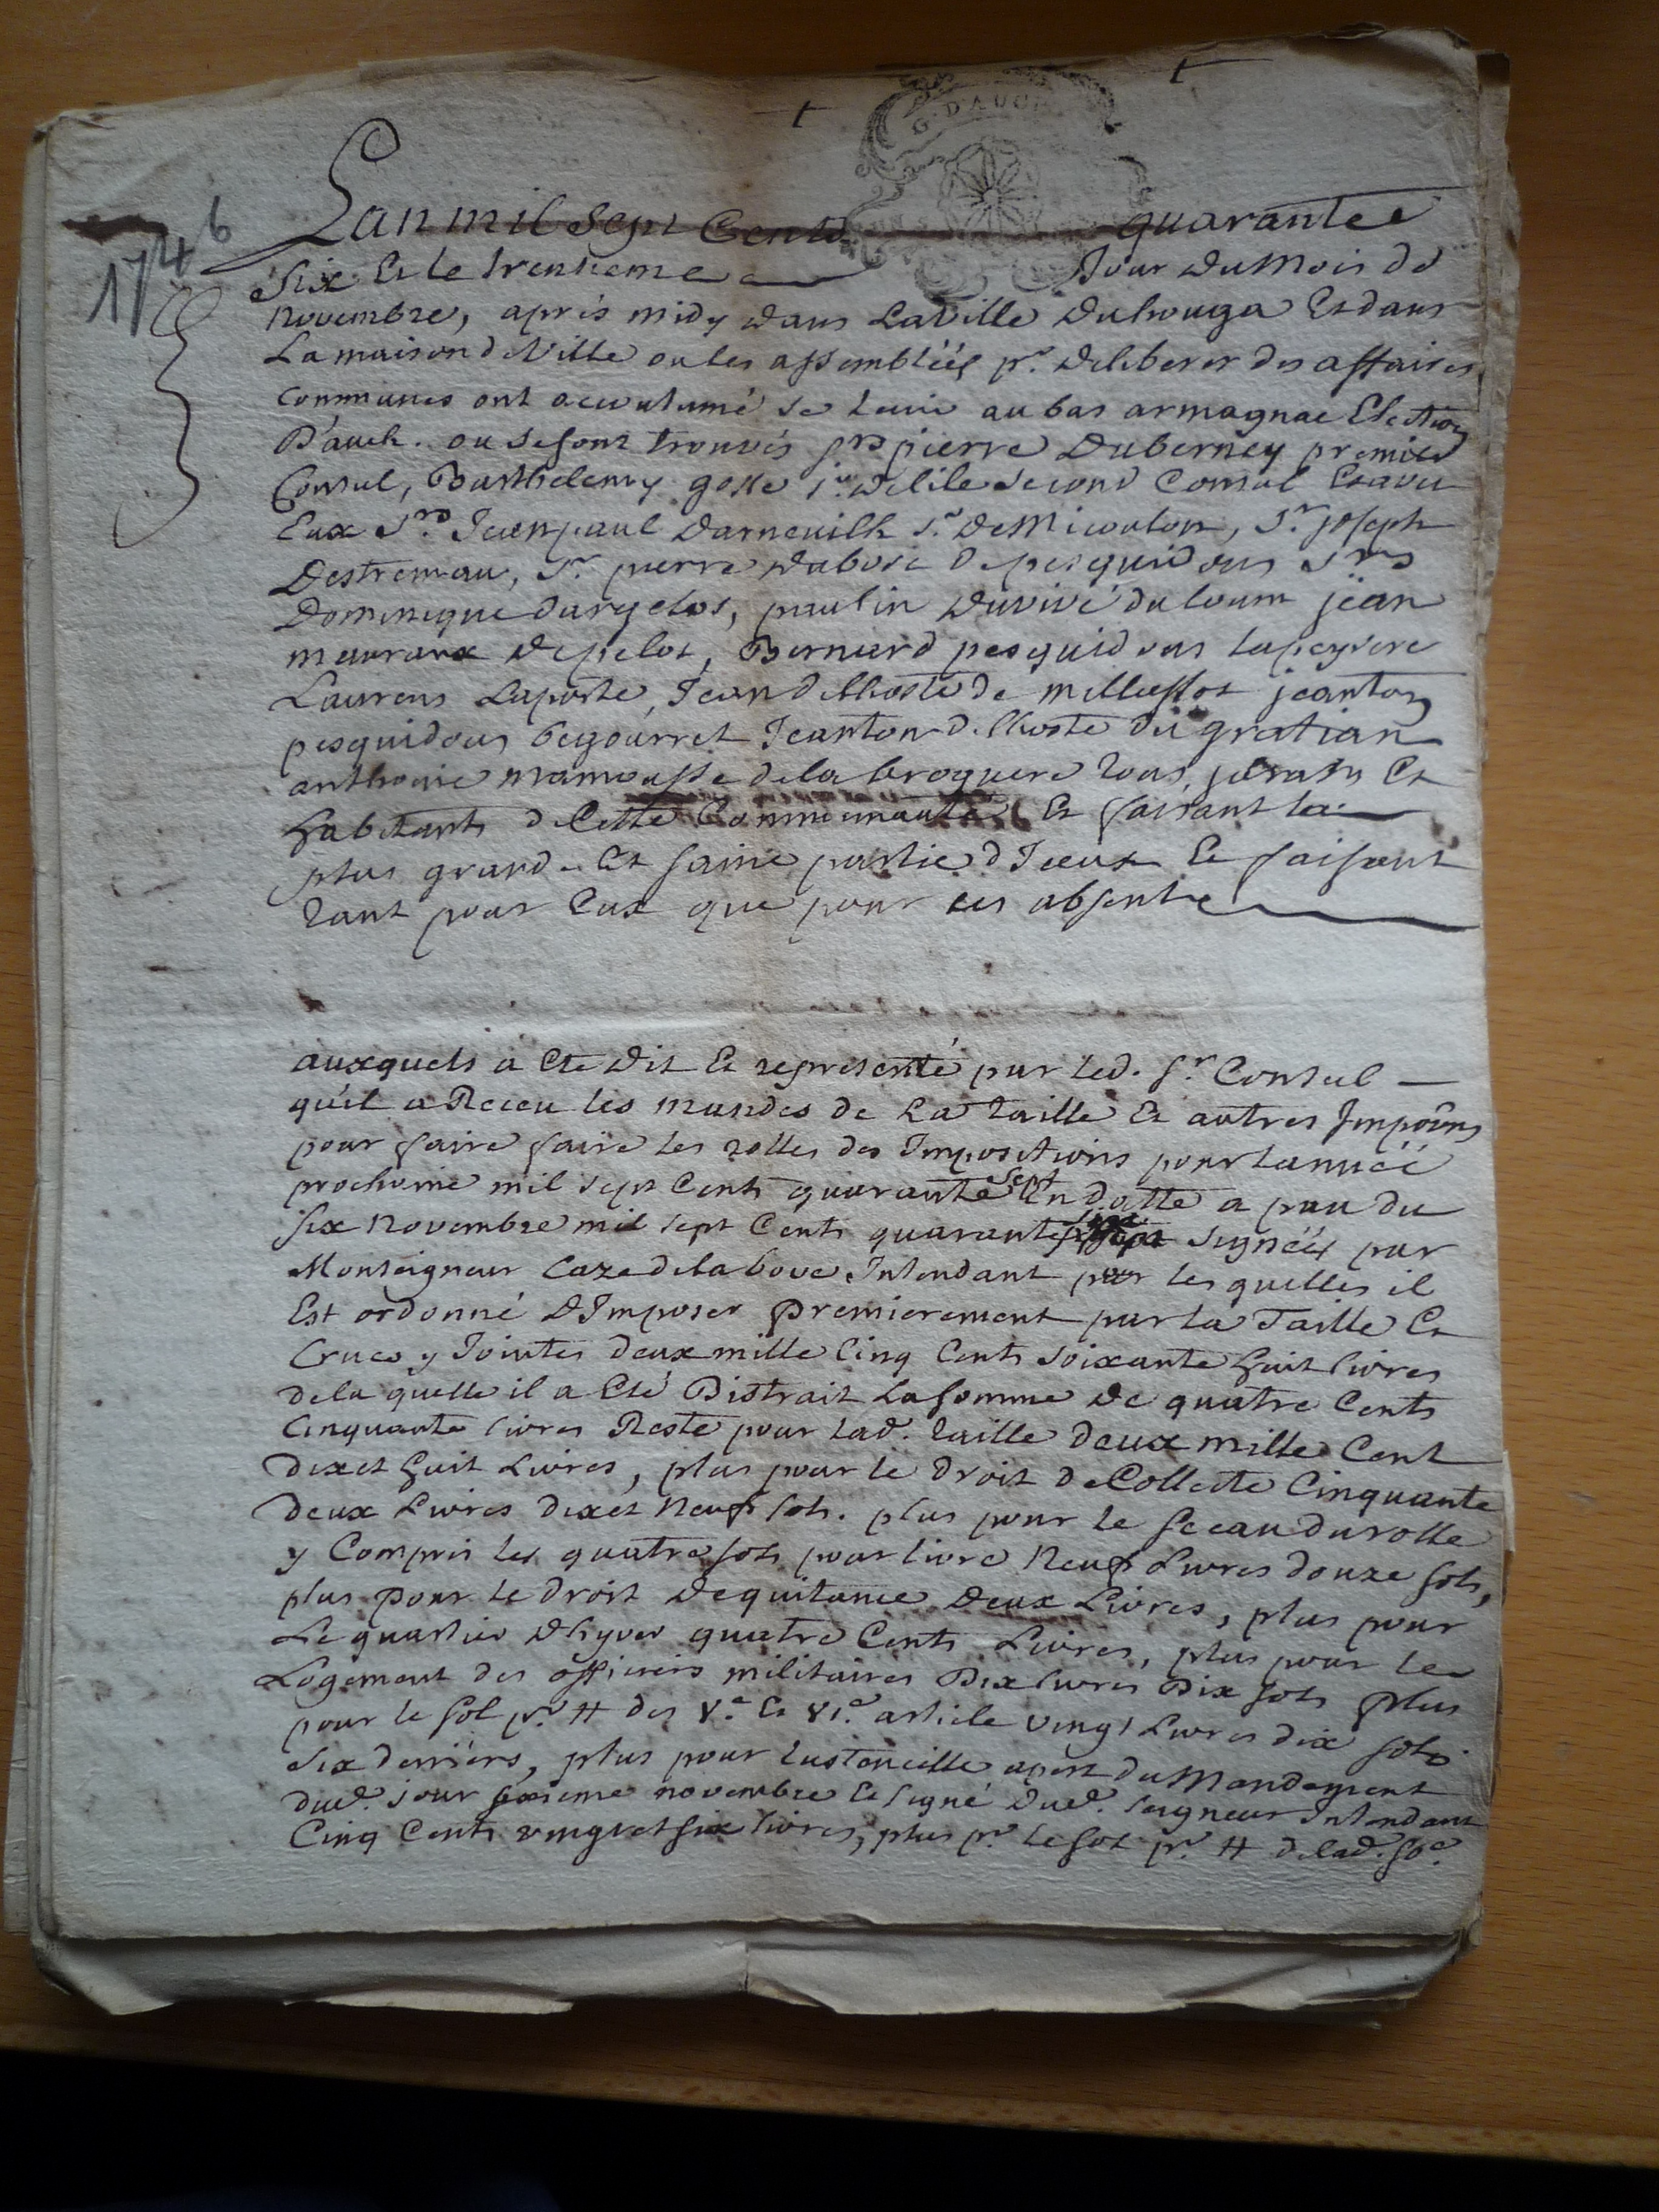 G. D'AUCH
1746
Lan mil sept Cents quarante
Six Et le trentieme Jour du Mois de
novembre, aprés midy dans La Ville Duhouga Et dans
La maison de Ville ou les assembléés pr. Deliberer des affaires
communes ont accoutumé se tenir au bas armagnac Election
D'auch. ou se sont trouvés srs pierre Duberney premier
Consul, Barthelemy gosse sr. de lile second Consul Et avec
Eux Srs. Jean paul Darneuilh sr. De Micoulon, Sr. joseph
Destremau, Sr. pierre dubosc de pesquidous Srs
Dominique dargelos, paulin duvivé du loum jean
maurans de pelot, Bernard pesquidous lapeyrere
Laurens Laporte, Jean delhoste de jeanton
pesquidous begourret Jeanton delhoste du gratian
anthoine mamousse de la broquere tous jurats Et
habitants de Cette Communauté Et faisant la
plus grande Et saine partie d'Iceux Et faisant
tant pour Eux que pour les absents
auxquels a Eté dit Et representé par led. sr. Consul
qu'il a Receu les mandes de La taille Et autres Impôns
pour faire faire les rolles des Impositions pour lannéé
prochaine mil sept Cents quarante sept En datte a pau du
six novembre mil sept Cents quarante six signéés par
Monseigneur Caze de la bove Intendant par les quelles il
Est ordonné D'Imposer premierement pour la Taille Et
Crues y Jointes deux mille Cinq Cents soixante huit livres
de la quelle il a Eté Distrait La somme de quatre Cents
Cinquante livres Reste pour lad. taille deux mille Cent
dixet huit Livres, plus pour le droit de Collecte Cinquante
deux Livres dixet neuf sols. plus pour le sceau du rolle
y Compris les quatre sols pour livre neuf Livres douze sols,
plus pour le droit de quitance deux Livres, plus pour
Le quartier d'hyver quatre Cents Livres, plus pour le
Logement des officiers militaires Dix livres Dix sols plus
pour le sol pr. ₶ des V.e Et VI.e article vingt Livres dix sols
six deniers, plus pour lustencille apert du Mandement
dud. jour sixieme novembre Et signé dud. seigneur Intendant
Cinq Cents vingt et six livres, plus pr. le sol pr. ₶ de lad. so.e